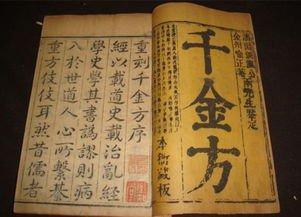 先生鑒定
千金方
本衙藏板
重刻千金方序
經以載道史載治亂經
學史學其書譌謬則病
入於世道人心所繫綦
重方伎伎耳然昔儒者